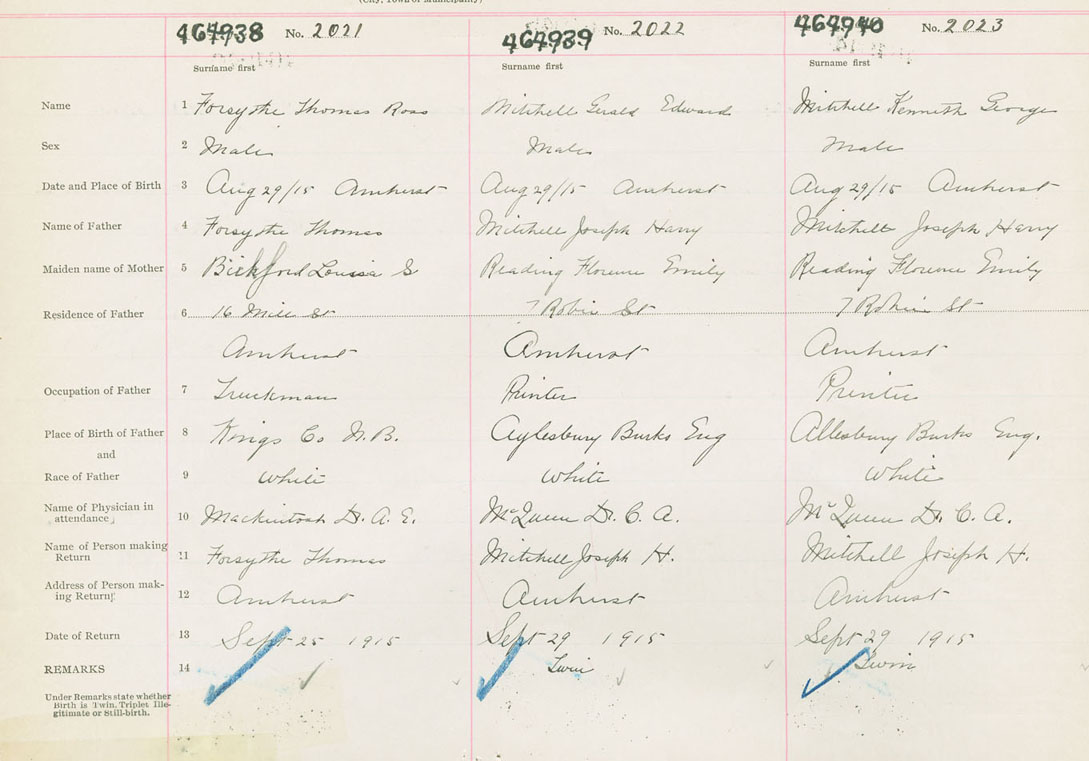 (City, Town or Municipality)
464938 No. 2021 464939 No. 2022 464940 No. 2023
Surname first Surname first Surname first
Name 1 Forsythe Thomas Ross Mitchell Gerald Edward Mitchell Kenneth George
Sex 2 Male Male Male
Date and Place of Birth 3 Aug 29/15 Amherst Aug 29/15 Amherst Aug 29/15 Amherst
Name of Father 4 Forsythe Thomas Mitchell Joseph Harry Mitchell Joseph Harry
Maiden name of Mother 5 Bickford Louisa S Reading Florence Emily Reading Florence Emily
Residence of Father 6 16 Mill St 7 Robie St 7 Robie St
Amherst Amherst Amherst
Occupation of Father 7 Truckman Printer Printer
Place of Birth of Father 8 Kings Co N.B. Aylesbury Burks Eng Allesbury Burks Eng.
and
Race of Father 9 White White White
Name of Physician in
attendance 10 Mackintosh Dr. A. E. McQueen Dr. C. A. McQueen Dr. C. A.
Name of Person making
Return 11 Forsythe Thomas Mitchell Joseph H. Mitchell Joseph H.
Address of Person mak-
ing Return 12 Amherst Amherst Amherst
Date of Return 13 Sept 25 1915 Sept 29 1915 Sept 29 1915
REMARKS 14 Twin Twin
Under Remarks state whether
Birth is Twin, Triplet Ille-
gitimate or Still-birth.